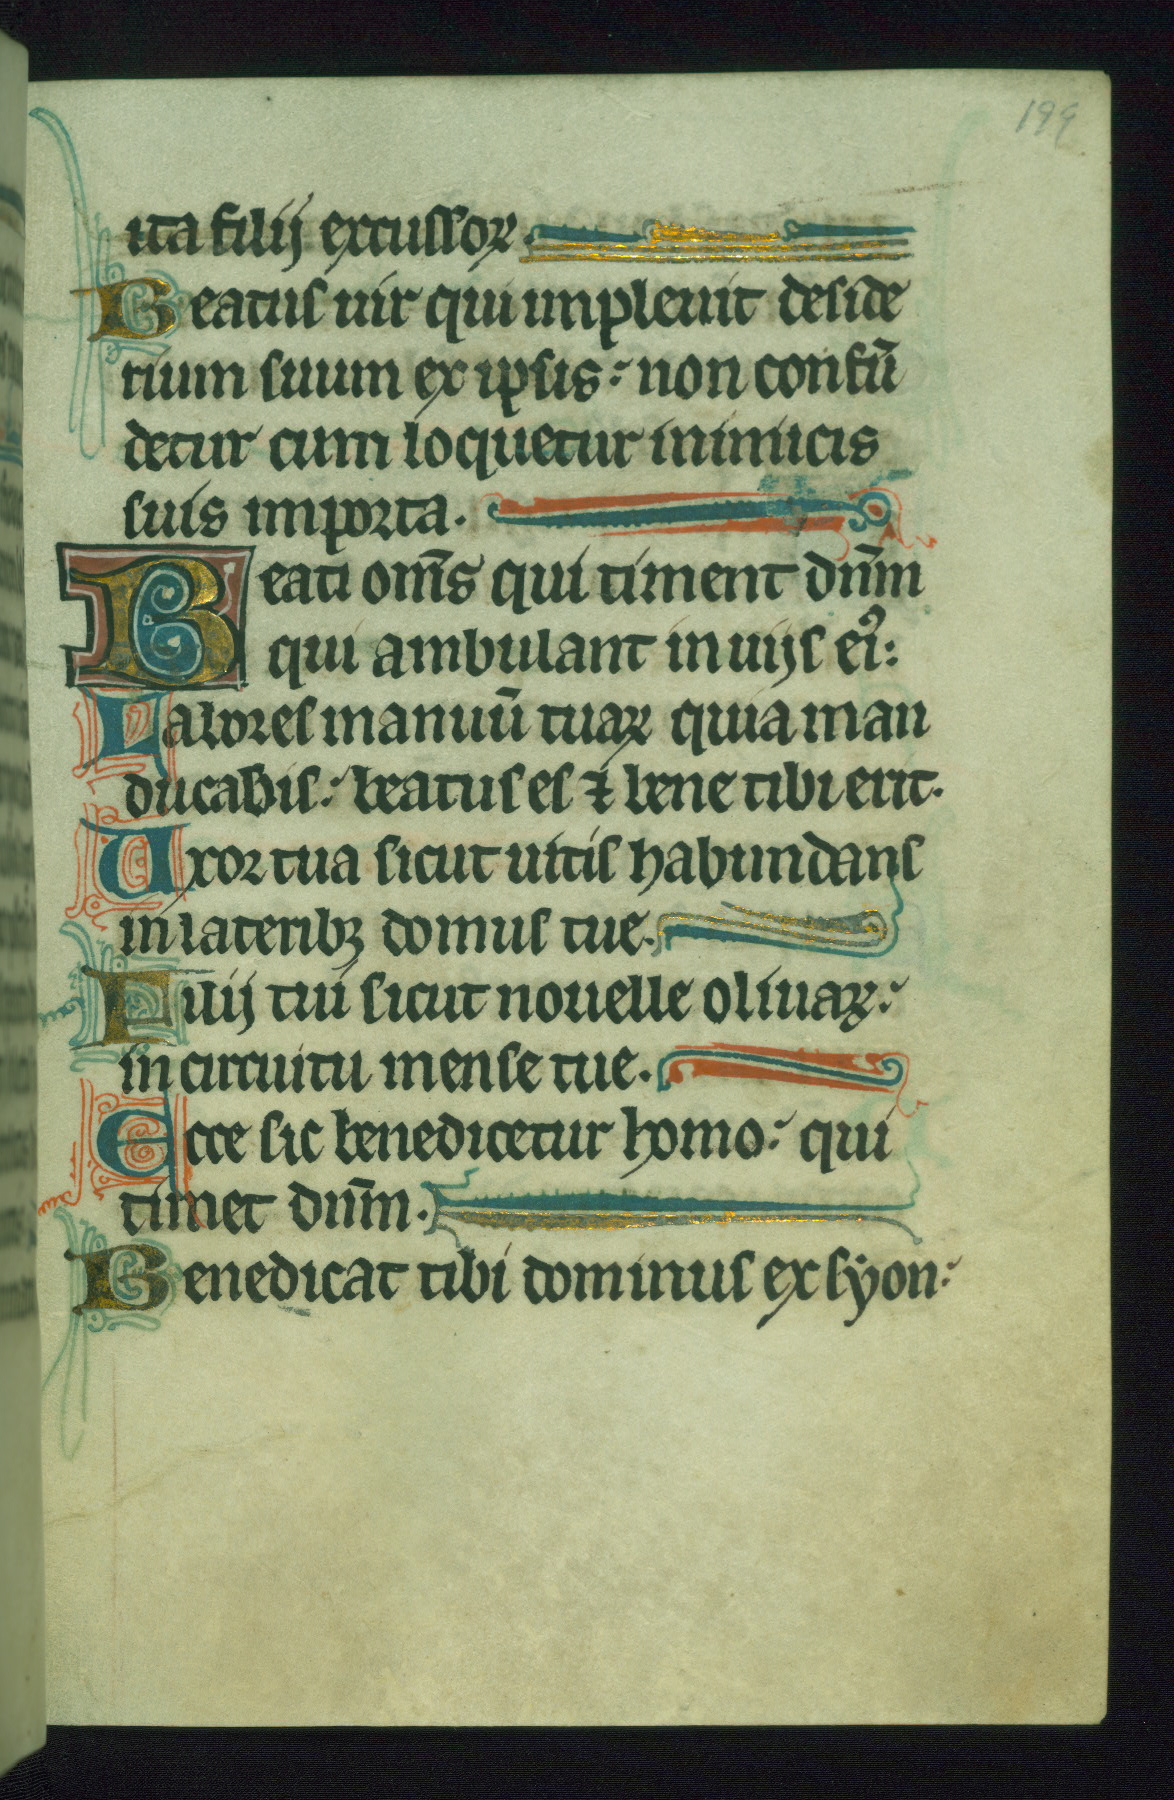 199
ita filij excussoꝝ.
Beatus uir qui impleuit deside
rium suum ex ipsis: non confū
detur cum loquetur inimicis
suis in porta.
Beati om̄s qui timent dn̄m
qui ambulant in uijs eiꝰ:
Labores manuū tuaꝝ quia man
ducabis: beatus es ⁊ bene tibi erit.
Uxor tua sicut uitis habundans
in lateribꝫ domus tue.
Filij tui sicut nouelle oliuaꝝ:
in circuitu mense tue.
Ecce sic benedicetur homo: qui
timet dn̄m.
Benedicat tibi dominus ex syon: